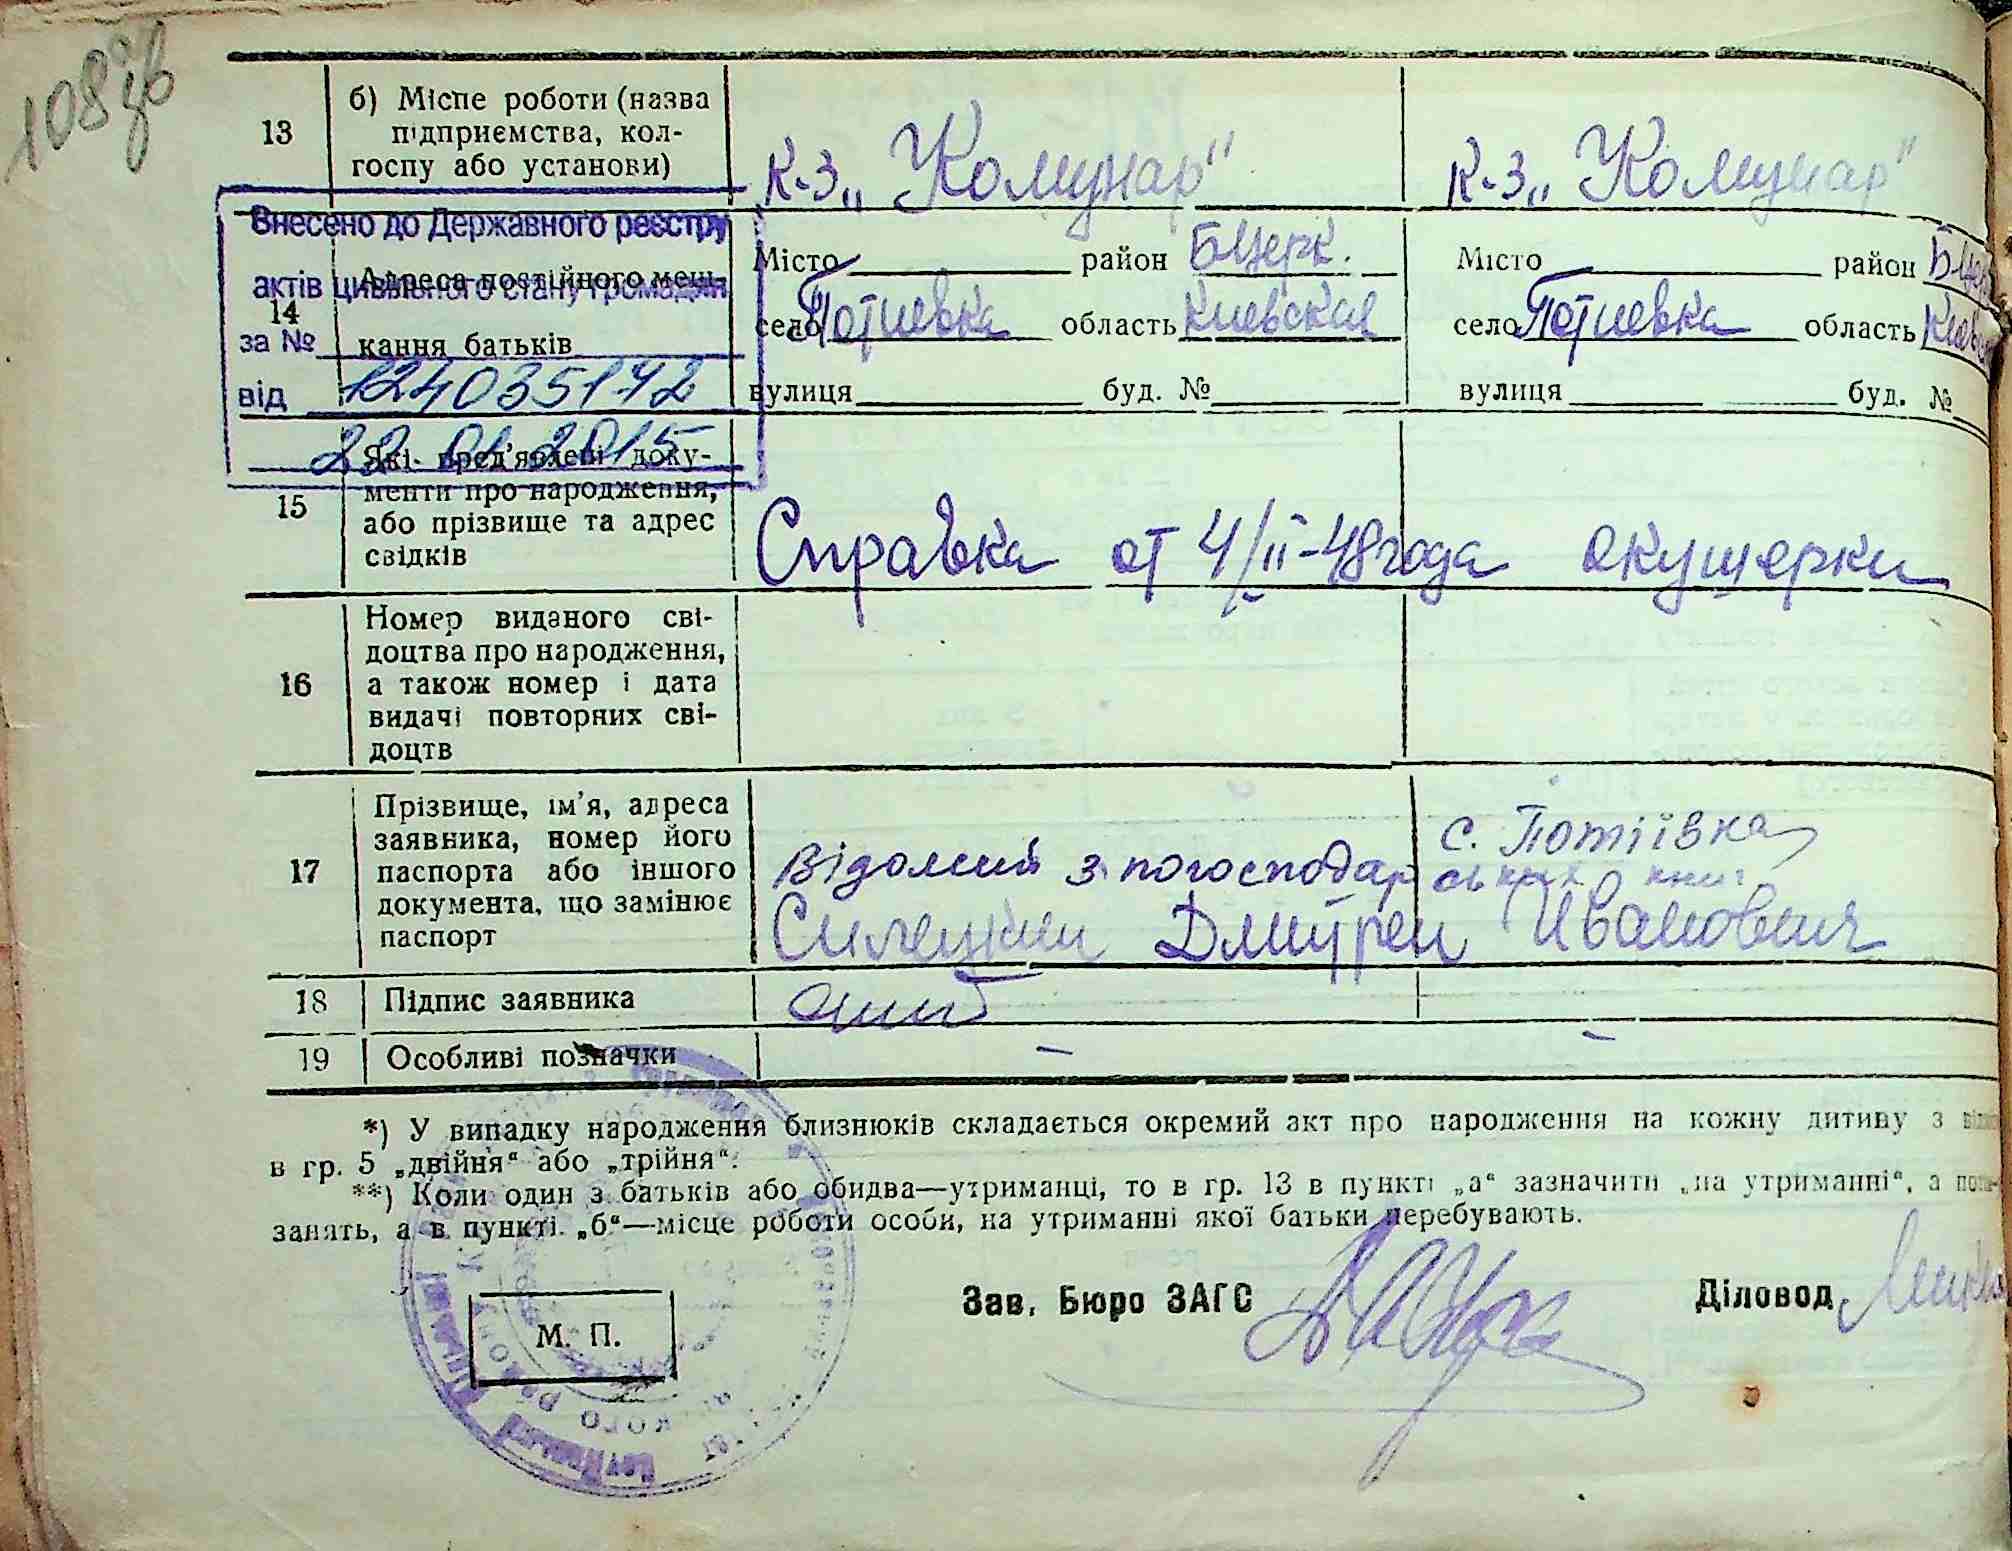 108 зв
13
б) Місце роботи (назва
підприємства, кол-
госпу або установи)
К-з „Комунар"
К-з „Комунар"
Внесено до Державного реєстру
актів цивільного стану громадян
за №
124035172
від
22 01 2015
14
Адреса постійного меш-
кання батьків
Місто район БЦерк.
село Потиевка область Киевская
вулиця буд. №
Місто район БЦер
село Потиевка область Киевс
вулиця буд. №
15
Які пред'явлені доку-
менти про народження,
або прізвище та адрес
свідків
Справка от 4/II-48 года акушерки
16
Номер виданого сві-
доцтва про народження,
а також номер і дата
видачі повторних сві-
доцтв
17
Прізвище, ім'я, адреса
заявника, номер його
паспорта або іншого
документа, що замінює
паспорт
с. Потіївка
Відомий з погосподарських книг
Силецкий Дмитрей Иванович
18
Підпис заявника
19
Особливі позначки
–
–
*) У випадку народження близнюків складається окремий акт про народження на кожну дитину з
в гр. 5 „двійня“ або „трійня“.
**) Коли один з батьків або обидва—утриманці, то в гр. 13 в пункті „а“ зазначити „на утриманні“, а
занять, а в пункті „б“—місце роботи особи, на утриманні якої батьки перебувають.
М. П.
Зав. Бюро ЗАГС
Діловод